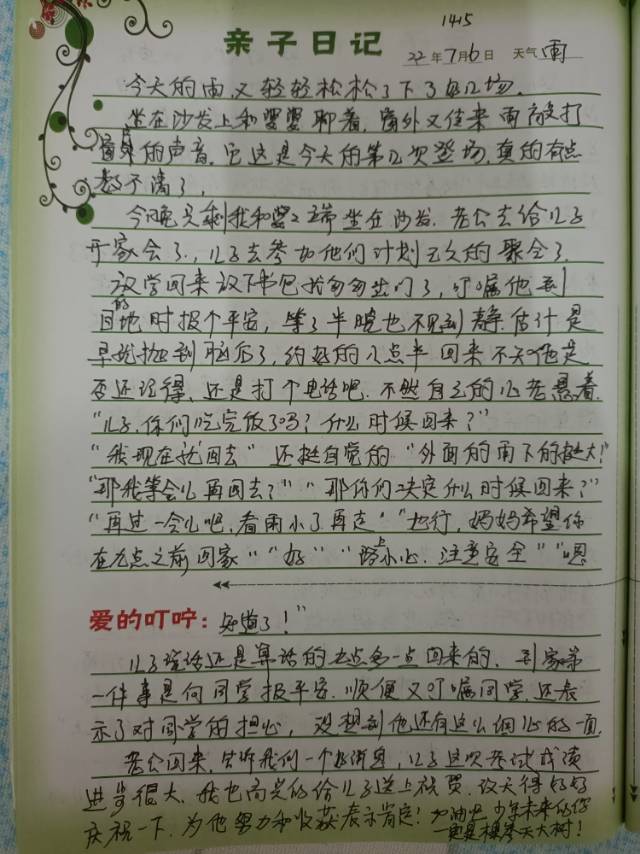 1415
亲子日记 22年7月6日 天气 雨
今天的雨又轻轻松松了下了好几场.
坐在沙发上和婆婆聊着,窗外又传来雨敲打
窗户的声音.它这是今天的第几次登场,真的有点
数不清了,
今晚只剩我和婆婆端坐在沙发.老公去给儿子
开家会了,儿子去参加他们计划已久的聚会了.
放学回来放下书包就匆匆出门了,叮嘱他到
目的地时报个平安,等了半晚也不见动静估计是
早就抛到脑后了,约好的八点半回来不知他是
否还记得.还是打个电话吧.不然自己的心老悬着.
"儿子,你们吃完饭了吗?什么时候回来?"
"我现在就回去" 还挺自觉的 "外面的雨下的挺大!"
"那我等会儿再回去?" "那你们决定什么时候回来?"
"再过一会儿吧,看雨小了再走" "也行,妈妈希望你
在九点之前回家" "好" "路上小心.注意安全" "嗯
爱的叮咛: 知道了!"
儿子说话还是算话的九点多一点回来的.到家第
一件事是向同学报平安.顺便又叮嘱同学,还表
示了对同学的担心,没想到他还有这么细心的一面.
老公回来,告诉我们一个好消息,儿子这次考试成绩
进步很大.我也高兴的给儿子送上祝贺.改天得好好
庆祝一下.为他努力和收获表示肯定!加油吧少年未来的你
一定是棵参天大树!